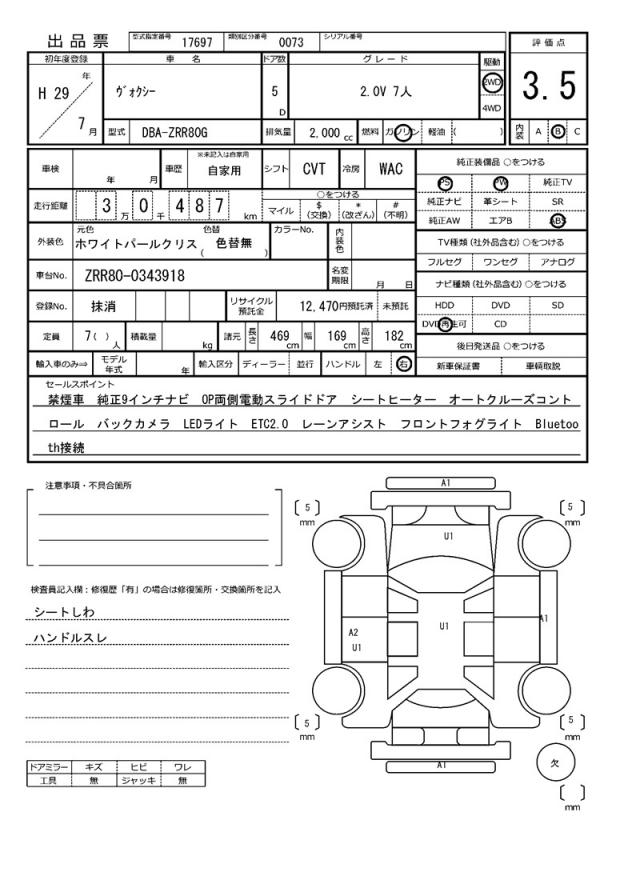 出品票 型式指定番号 17697 類別区分番号 0073 シリアル番号
評価点
3.5
初年度登録 車名 ドア数 グレード 駆動
H 29 年 ヴォクシー 5 D 2.0V 7人 2WD
4WD
7 月 型式 DBA-ZRR80G 排気量 2,000 cc 燃料 ガソリン 軽油 ( ) 内装 A B C
車検 年 月 車歴 ※未記入は自家用 自家用 シフト CVT 冷房 WAC
純正装備品 ○をつける
PS PW 純正TV
純正ナビ 革シート SR
純正AW エアB ABS
走行距離 3 万 0 千 4 8 7 km
○をつける
マイル $ (交換) * (改ざん) # (不明)
外装色 元色 ホワイトパールクリス 色替 ( 色替無 ) カラーNo. 内装色
TV種類 (社外品含む) ○をつける
フルセグ ワンセグ アナログ
車台No. ZRR80-0343918 名変期限 月 日
ナビ種類 (社外品含む) ○をつける
HDD DVD SD
DVD再生可 CD
登録No. 抹消 リサイクル預託金 12,470円預託済 未預託
定員 7( ) 人 積載量 kg 諸元 長さ 469 cm 幅 169 cm 高さ 182 cm
後日発送品 ○をつける
新車保証書 車輌取説
輸入車のみ⇒ モデル年式 年 輸入区分 ディーラー 並行 ハンドル 左 右
セールスポイント
禁煙車 純正9インチナビ OP両側電動スライドドア シートヒーター オートクルーズコント
ロール バックカメラ LEDライト ETC2.0 レーンアシスト フロントフォグライト Bluetoo
th接続
注意事項・不具合箇所
検査員記入欄：修復歴「有」の場合は修復箇所・交換箇所を記入
シートしわ
ハンドルスレ
ドアミラー キズ ヒビ ワレ
工具 無 ジャッキ 無
A1
5 mm
5 mm
U1
A2
U1
U1
A1
5 mm
5 mm
A1
欠
mm